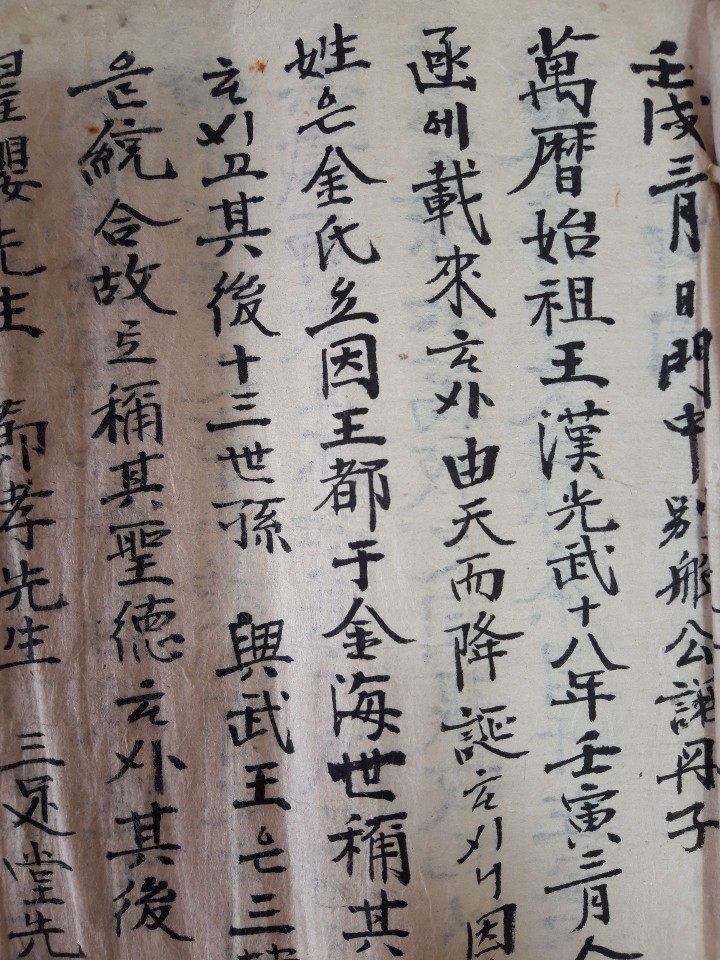 壬戌 三月 日 門中別般公議冊子
萬曆始祖王漢光武十八年壬寅三月
函에載來ᄒᆞ사由天而降誕ᄒᆞ시니因
姓은金氏오因王都于金海世稱其
ᄒᆞ시고其後十三世孫 興武王은三韓
을統合故로稱其聖德ᄒᆞ사其後
先生 節孝先生 三足堂先